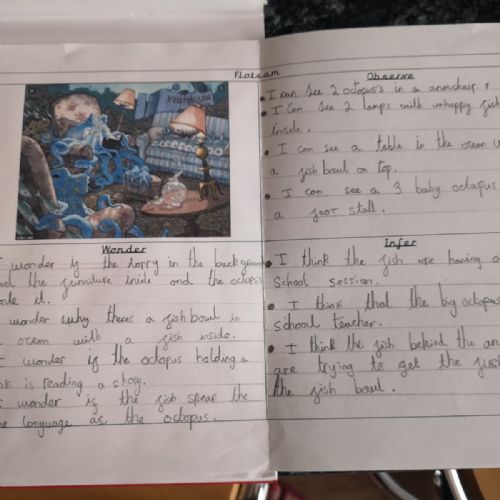 Flotsam
Wonder
wonder if the lorry in the background
the furniture inside and the octopus
it.
wonder why theres a fish bowl in
ocean with a fish inside.
wonder if the octopus holding a
is reading a story.
wonder is the fish speak the
language as the octopus.
Observe
I can see 2 octopus's in a armchair.
I Can see 2 lamps with unhappy fish
inside.
I can see a table in the ocean
a fish bowl on top.
I can see a 3 baby octopus
a foot stall.
Infer
I think the fish are having a
School session.
I think that the big octopus
school teacher.
I think the fish behind the
are trying to get the
the fish bowl.